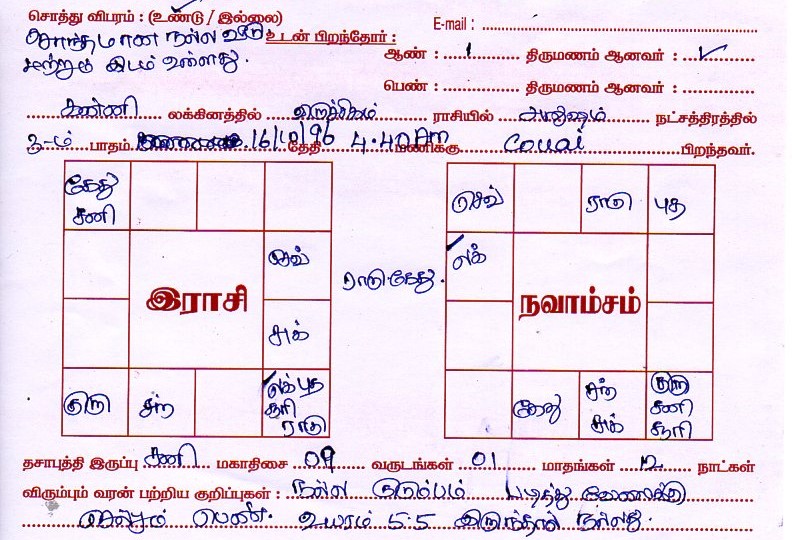 சொத்து விபரம் : (உண்டு / இல்லை)
E-mail :
சொந்தமான நல்ல வீடு உடன் பிறந்தோர் :
ஆண் : 1 திருமணம் ஆனவர் : ✓
மற்றும் இடம் உள்ளது.
பெண் : திருமணம் ஆனவர் :
கன்னி லக்கினத்தில் விருச்சிகம் ராசியில் அனுஷம் நட்சத்திரத்தில்
3-ம் பாதம். தேதி 4.40 AM மணிக்கு covai பிறந்தவர்.
கேது சனி
செவ் ராகு புத
செவ் ராகு-கேது. லக்
இராசி நவாம்சம்
சுக்
குரு சந் லக் புத சூரி ராகு
கேது சந் சுக் குரு சனி சூரி
தசாபுத்தி இருப்பு சனி மகாதிசை 09 வருடங்கள் 01 மாதங்கள் 12 நாட்கள்
விரும்பும் வரன் பற்றிய குறிப்புகள் : நல்ல குடும்பம் படித்து வேலைக்கு
செல்லும் பெண். உயரம் 5.5 இருந்தால் நல்லது.